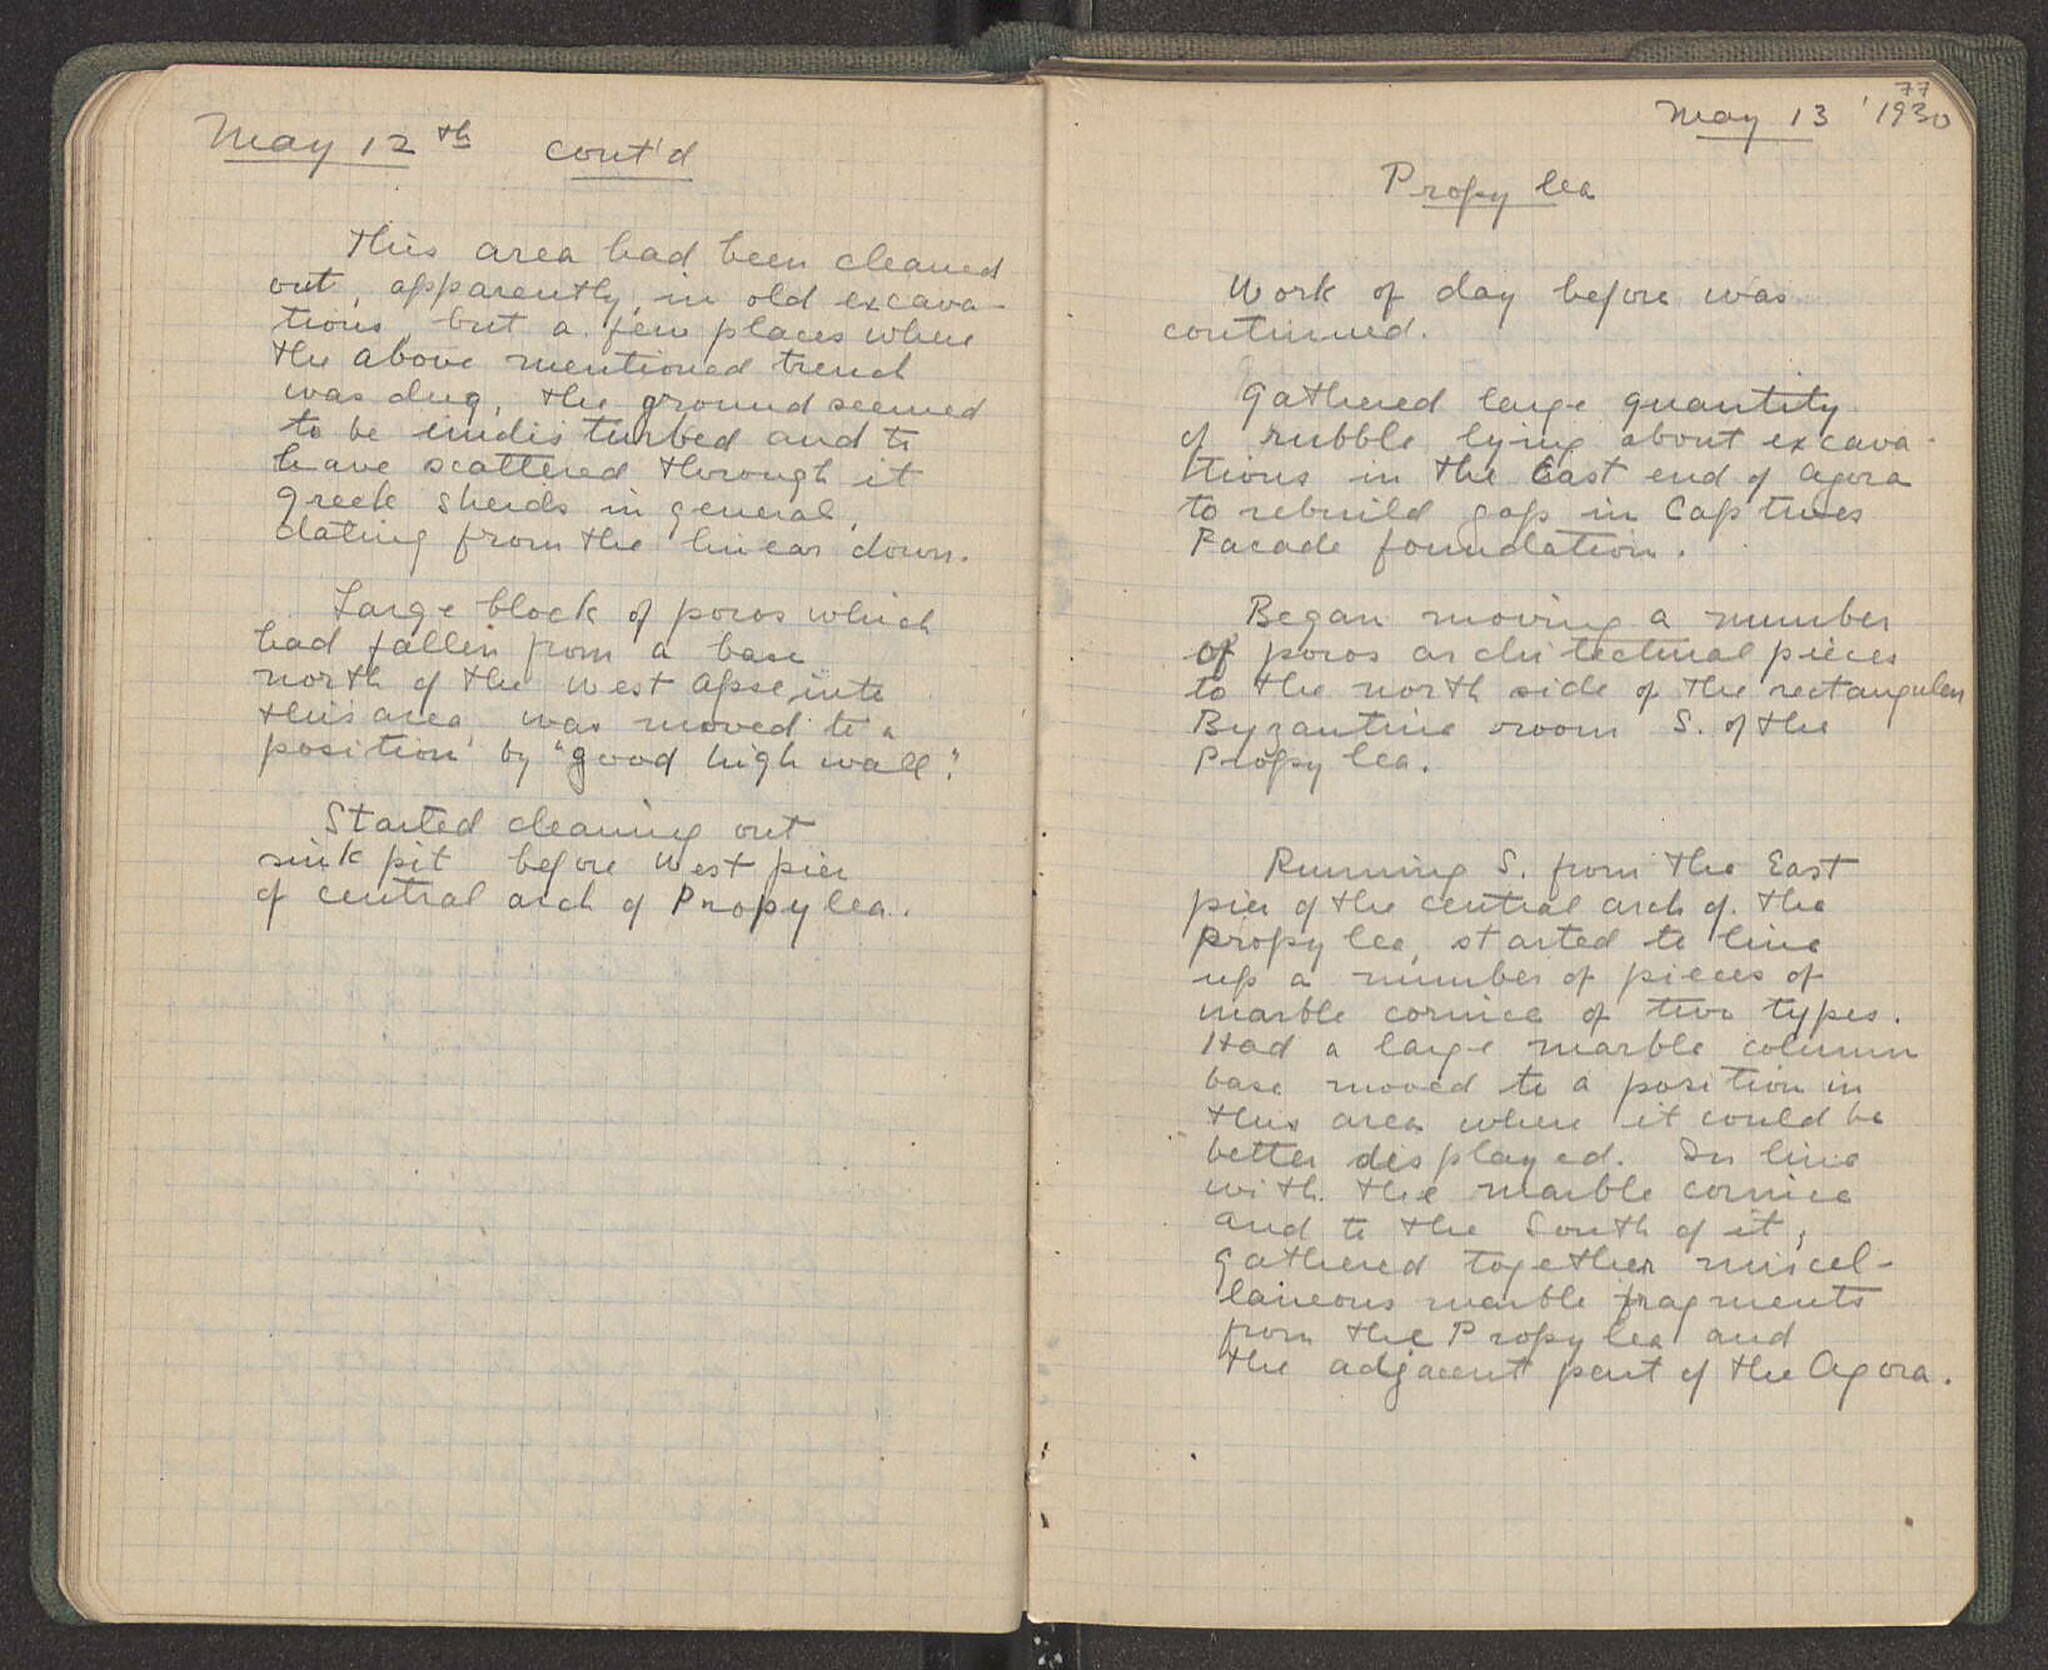 May 12th cont'd
This area had been cleaned
out, apparently, in old excava-
tions, but a few places where
the above mentioned trench
was dug, the ground seemed
to be undisturbed and to
have scattered through it
Greek sherds in general,
dating from the linear down.
Large block of poros which
had fallen from a base
north of the West Apse into
this area, was moved to a
position by "good high wall".
Started cleaning out
sink pit before West pier
of central arch of Propylea.
77
May 13 '1930
Propylea
Work of day before was
continued.
Gathered large quantity
of rubble lying about excava-
tions in the East end of Agora
to rebuild gap in Captives
Facade foundation.
Began moving a number
of poros architectural pieces
to the north side of the rectangular
Byzantine room S. of the
Propylea.
Running S. from the East
pier of the central arch of the
Propylea, started to line
up a number of pieces of
marble cornice of two types.
Had a large marble column
base moved to a position in
this area where it could be
better displayed. In line
with the marble cornice
and to the South of it,
gathered together miscel-
laneous marble fragments
from the Propylea and
the adjacent part of the Agora.